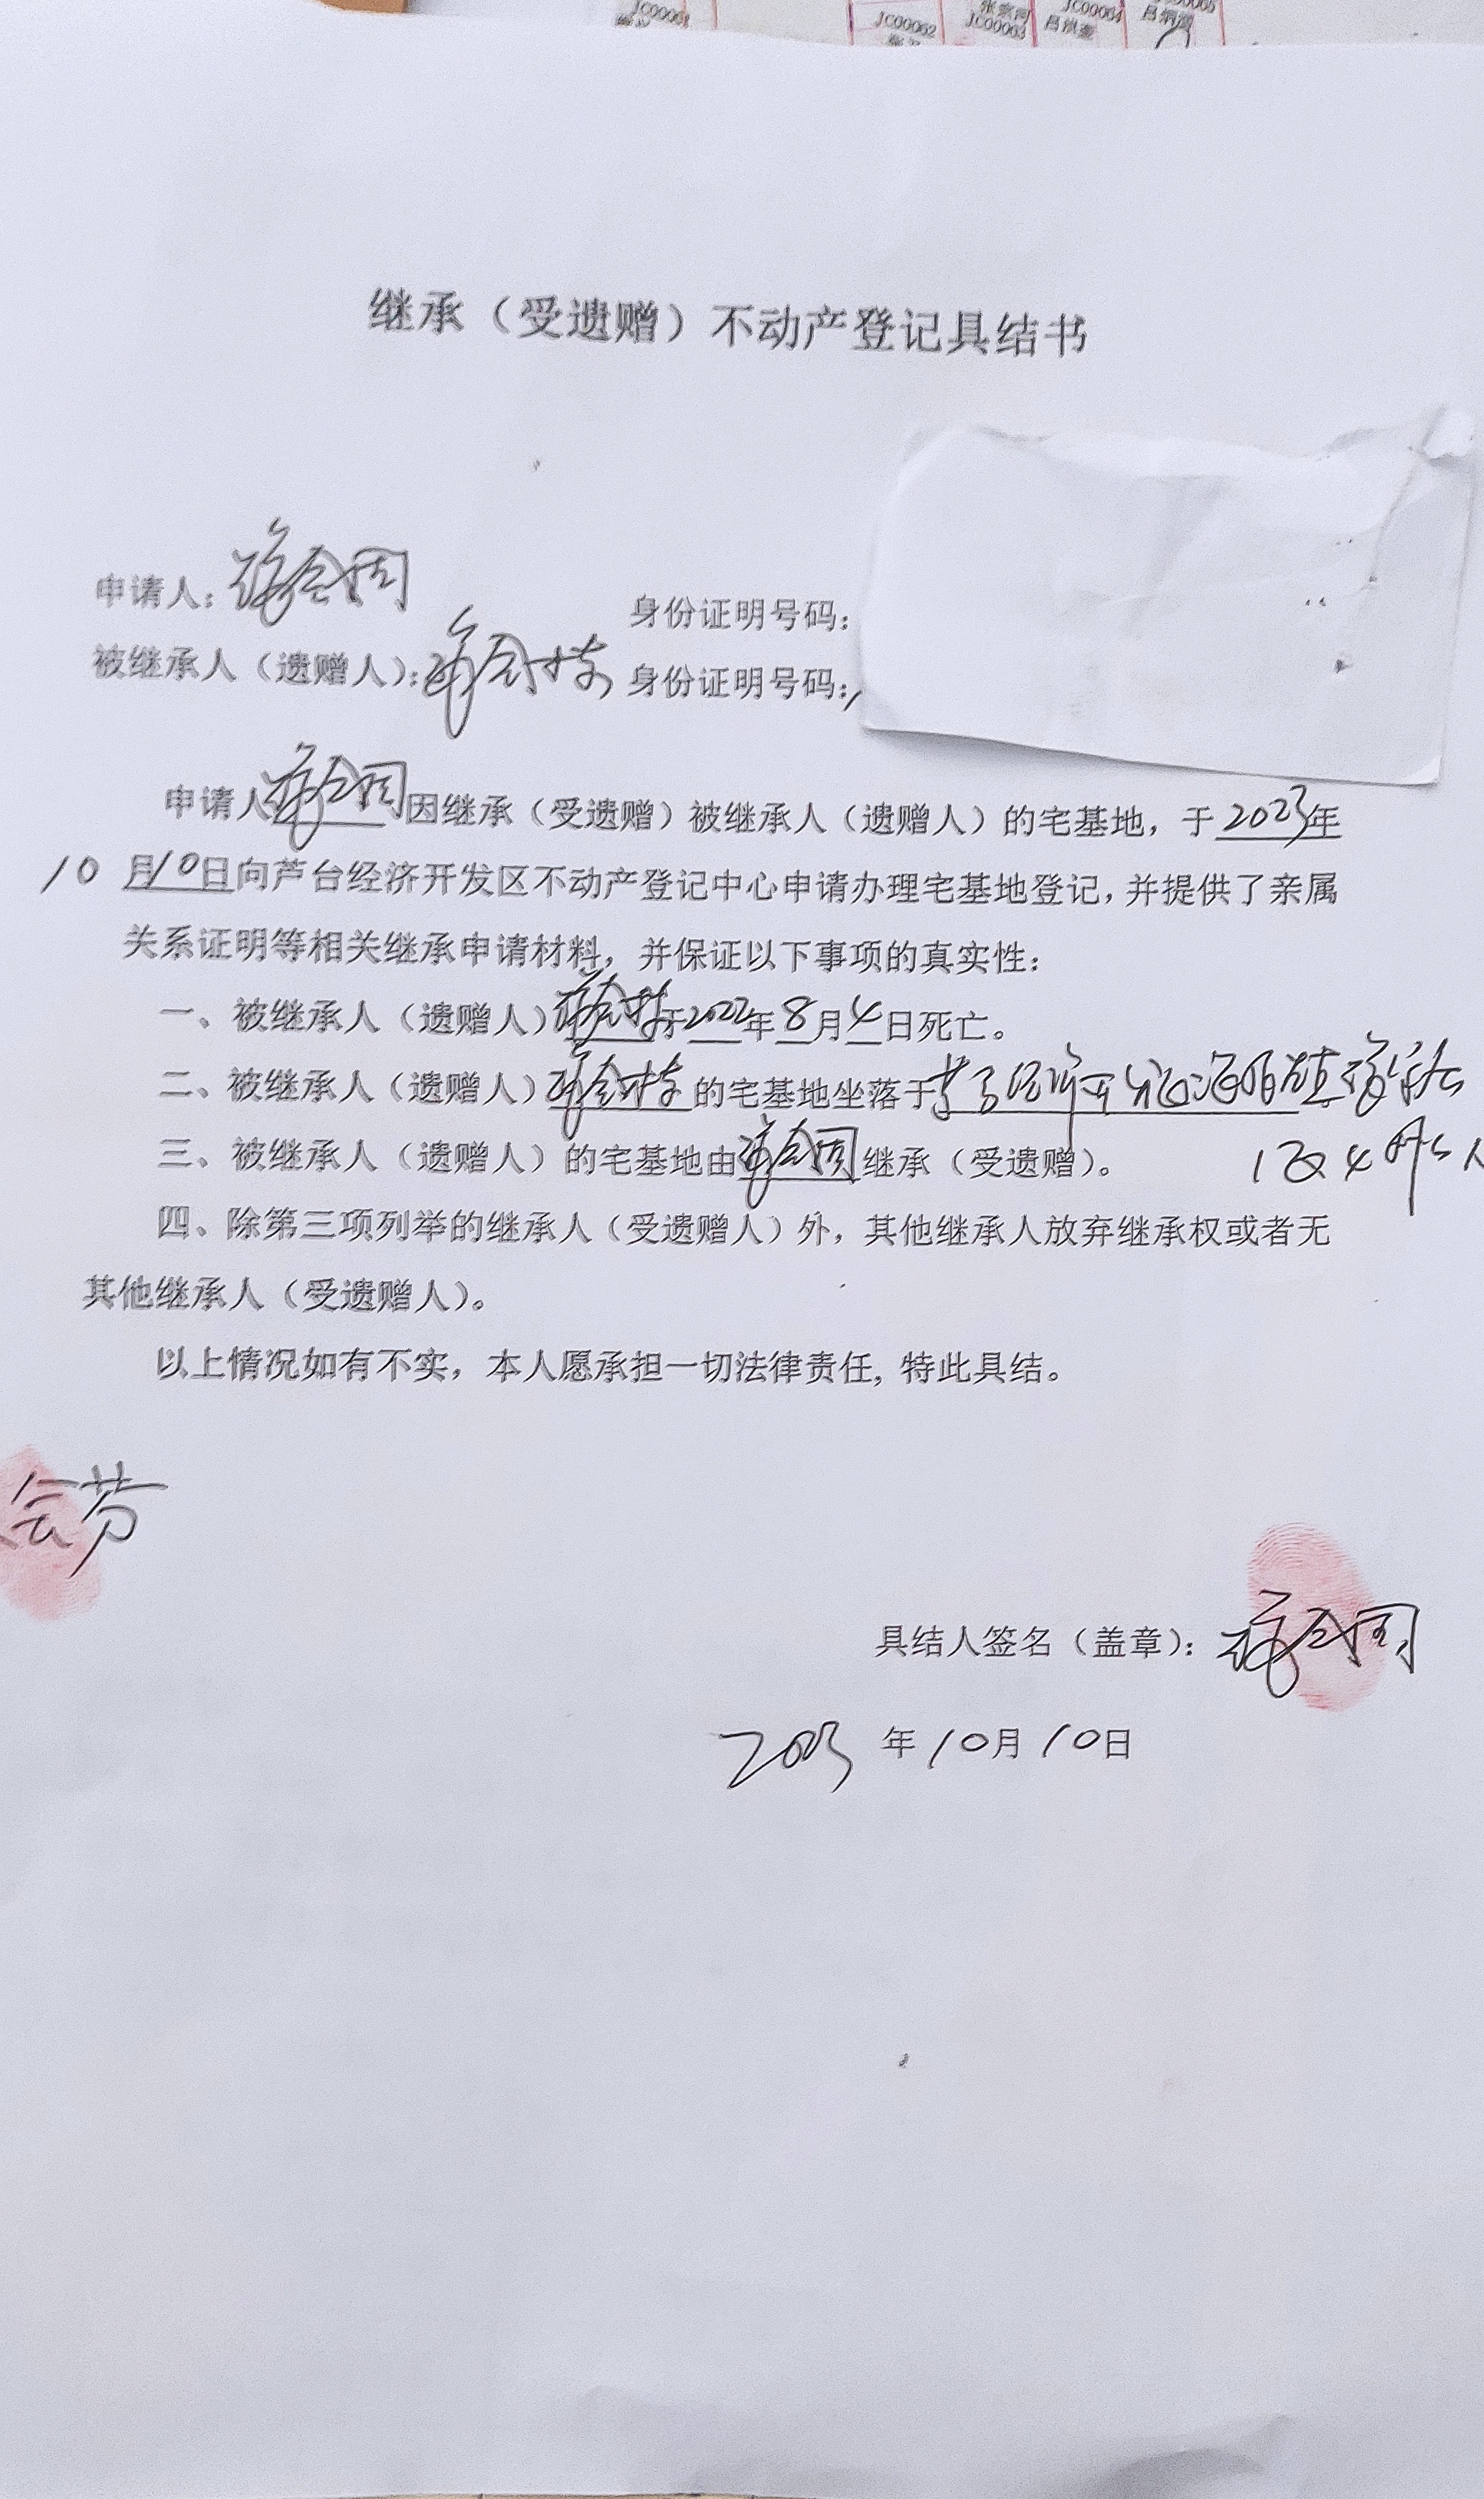 JC00061
JC00062
JC00003
JC00004
继承（受遗赠）不动产登记具结书
申请人：
身份证明号码：
被继承人（遗赠人）：
身份证明号码：
申请人 因继承（受遗赠）被继承人（遗赠人）的宅基地，于2023年
10月10日向芦台经济开发区不动产登记中心申请办理宅基地登记，并提供了亲属
关系证明等相关继承申请材料，并保证以下事项的真实性：
一、被继承人（遗赠人） 于2022年8月4日死亡。
二、被继承人（遗赠人） 的宅基地坐落于
三、被继承人（遗赠人）的宅基地由 继承（受遗赠）。
四、除第三项列举的继承人（受遗赠人）外，其他继承人放弃继承权或者无
其他继承人（受遗赠人）。
以上情况如有不实，本人愿承担一切法律责任，特此具结。
会芳
具结人签名（盖章）：
2023年10月10日